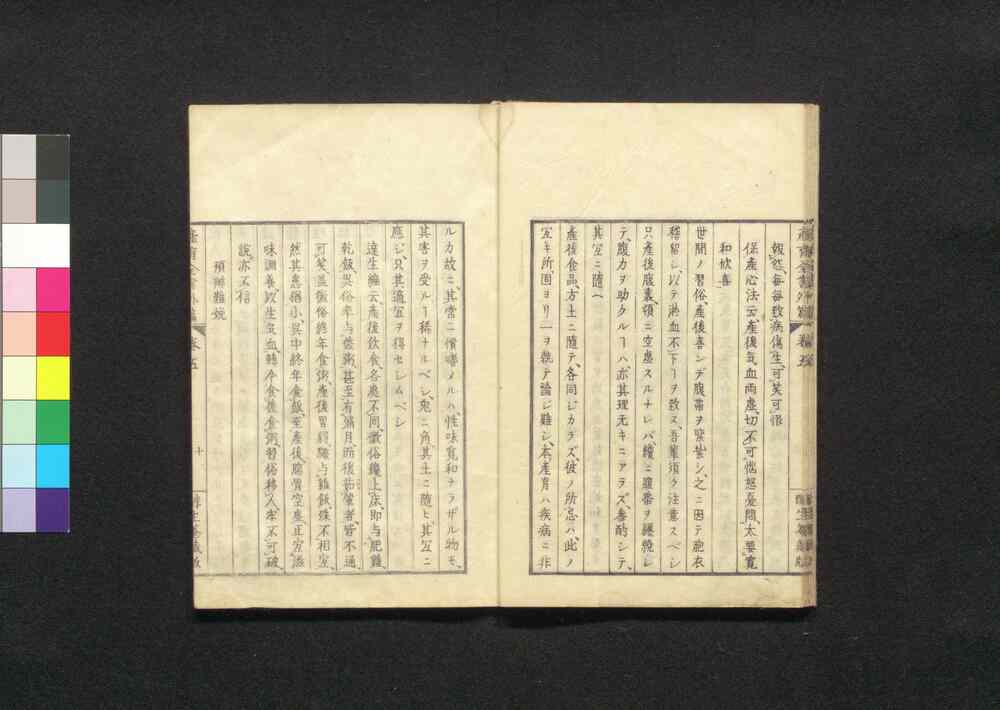 報怨、毎毎致病傷生、可笑可恨
保産心法云、産後気血両虚、切不可惱怒憂悶、太要寛
和欣喜
世間ノ習俗、産後善ンデ腹帯ヲ緊紮シ、之ニ因テ胞衣
稽留シ、以テ淋血不下ーヲ致ス、吾輩須ク注意スベシ
只産後腹裏頓ニ空虚スルナレバ、纔ニ腹帯ヲ纏繞シ
テ、腹力ヲ助クルーハ、亦其理无キニアラズ、斟酌シテ、
其宜ニ随ヘ
産後食品、方土ニ随テ、各同ジカラズ、彼ノ所忌ハ、此ノ
宜キ所、固ヨリ一ヲ執テ論ジ難シ、本産育ハ疾病ニ非
ルカ故ニ、其常ニ慣嗜メルハ、性味寛和ナラザル物モ、
其害ヲ受ルー稀ナルベシ、兎ニ角其土ニ随ヒ、其宜ニ
應ジ、只其適宜ヲ得セシムベシ
達生編云、産後飲食、各處不同、徽俗纔上床、即与肥雞
乾飯、呉俗率与齋粥、甚至有滿月而後茹葷者、皆不通、
可笑、蓋徽俗終年食粥、産後胃弱、驟与雞飯、殊不相宜、
然其患猶小、呉中終年食飯、至産後、腸胃空虚、正宜滋
味調養、以生気血、轉令食素食粥、習俗移人、牢不可破
説亦不信
預辨難娩
産育全書外篇
巻五
十